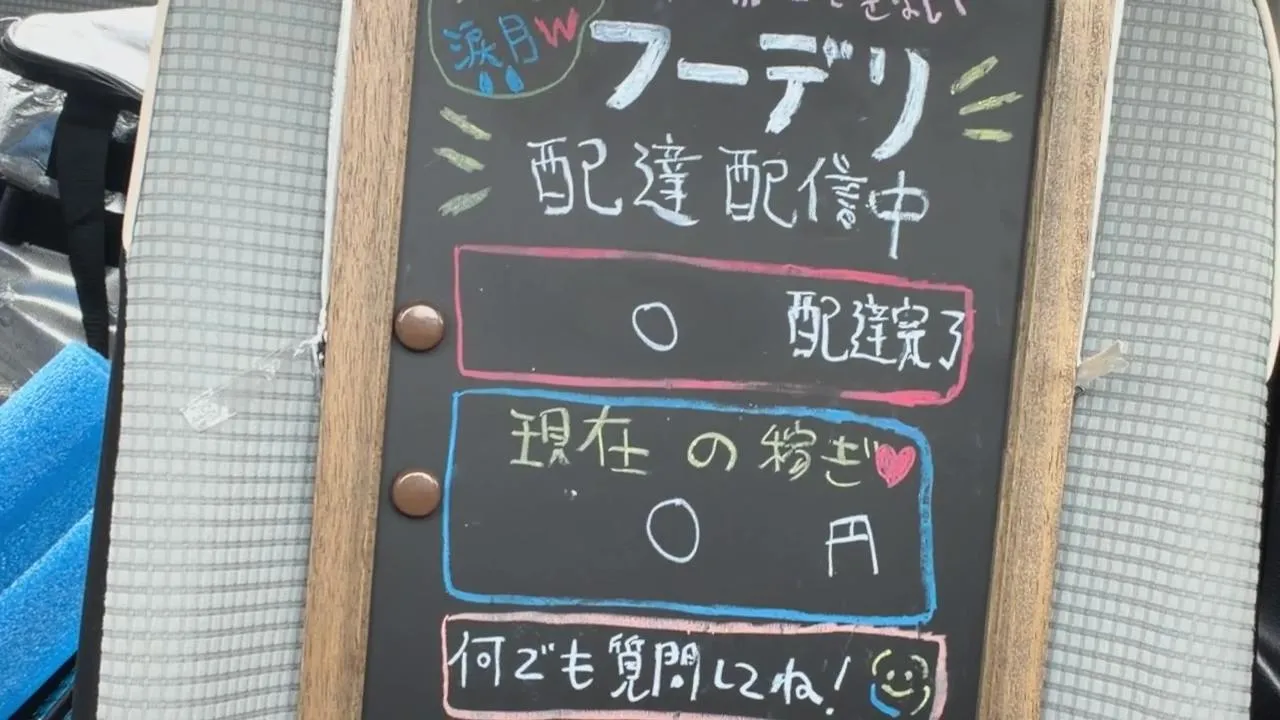 涙月W
フーデリ
配達配信中
〇 配達完了
現在の稼ぎ
〇 円
何でも質問してね!